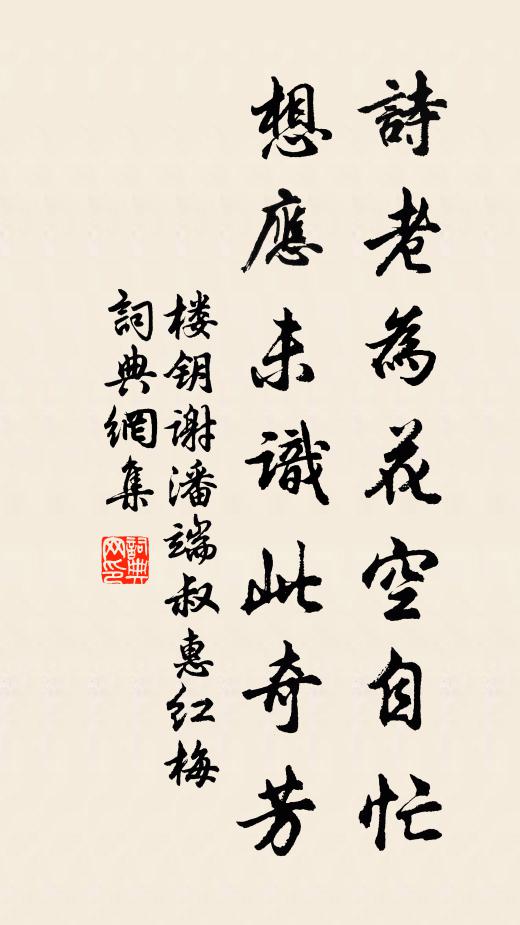 詩老為花空自忙
想應未識此奇芳
楼钥谢潘端叔惠红梅
詞典網集
詞典网印